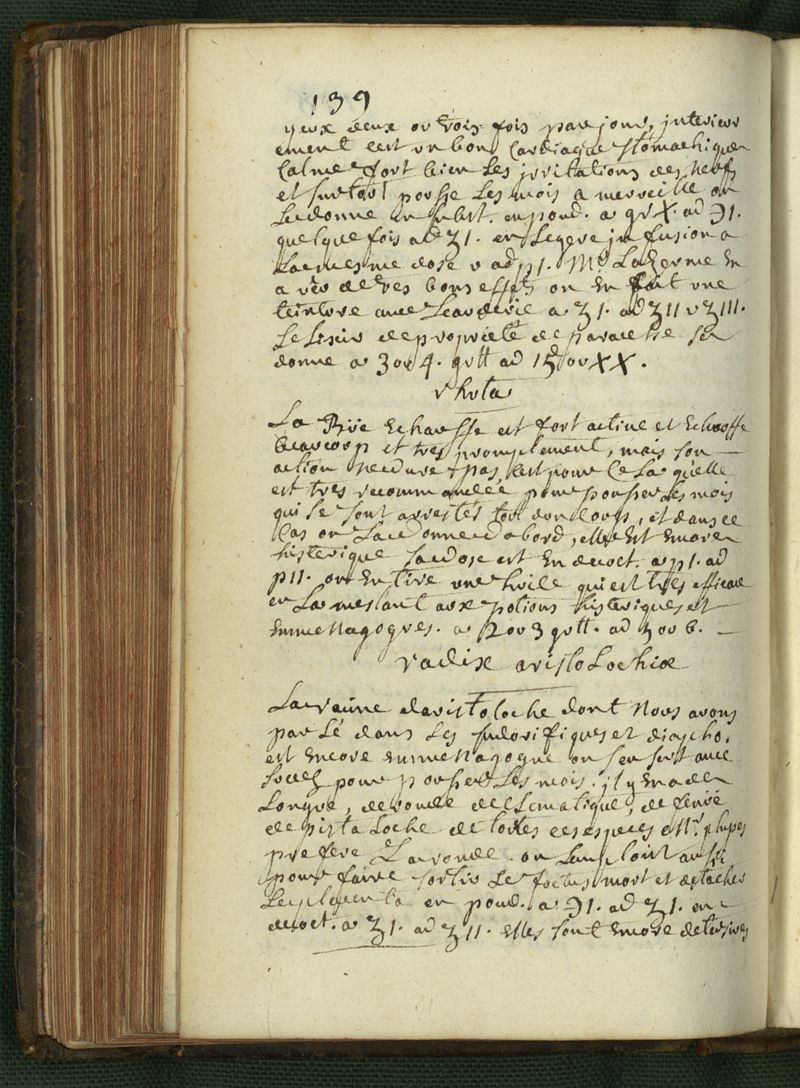 139
yeux deux ou trois fois par jour, interieur
ement c'est un bon Cardiaque stomachique
Calme fort bien Les irritations des nerfs
et surtout pousse Les mois a merveille on
Le donne en subst. en poud. a gr X. ad ℈1.
quelque fois ad ʒ1. en Legere infusion a
La mesme dose v ad p1. Mr Lazerme en
a veu de tres bons effets on en fait une
teinture avec Leau de vie a ʒ1. ad ʒ11 v ʒ111.
Le Lixir de propriete de paracelse se
donne a 3 ou 4. gutt ad 15 ou XX.
rhuta
La Rüe Echauffe est fort active et Echauffe
beaucoup et tres promptement, mais son
action ne dure pas, c'est pour Cela quelle
est tres recommandée pour pousser Les mois
qui se sont arrestés tout d'un coup, et dans ce
Cas on La donne d'abord, elle Est Encore
histerique sa dose est En decoct. a p1. ad
p11. on En tire une huile qui est tres efficace
en La meslant aux potions histeriques et
Emmenagogues. a 2 ou 3 gutt. ad 5 ou 6.
radix aristoLochiæ
La racine daristoloche dont Nous avons
parLé dans Les sudorifiques et diapho.
est Encore Emmenagogue on s'en sert avec
succez pour pousser Les mois. il y En a de
Longue, de ronde de clematique, de
de pistaLoche de toutes ces especes Mr.
prefere La ronde. on L'emploit aussi
pour faire sortir Le foetus mort et detacher
Le placenta en poud. a ℈1. ad ʒ1. en
decoct. a ʒ1. ad ʒ11. elles sont Encore detersives